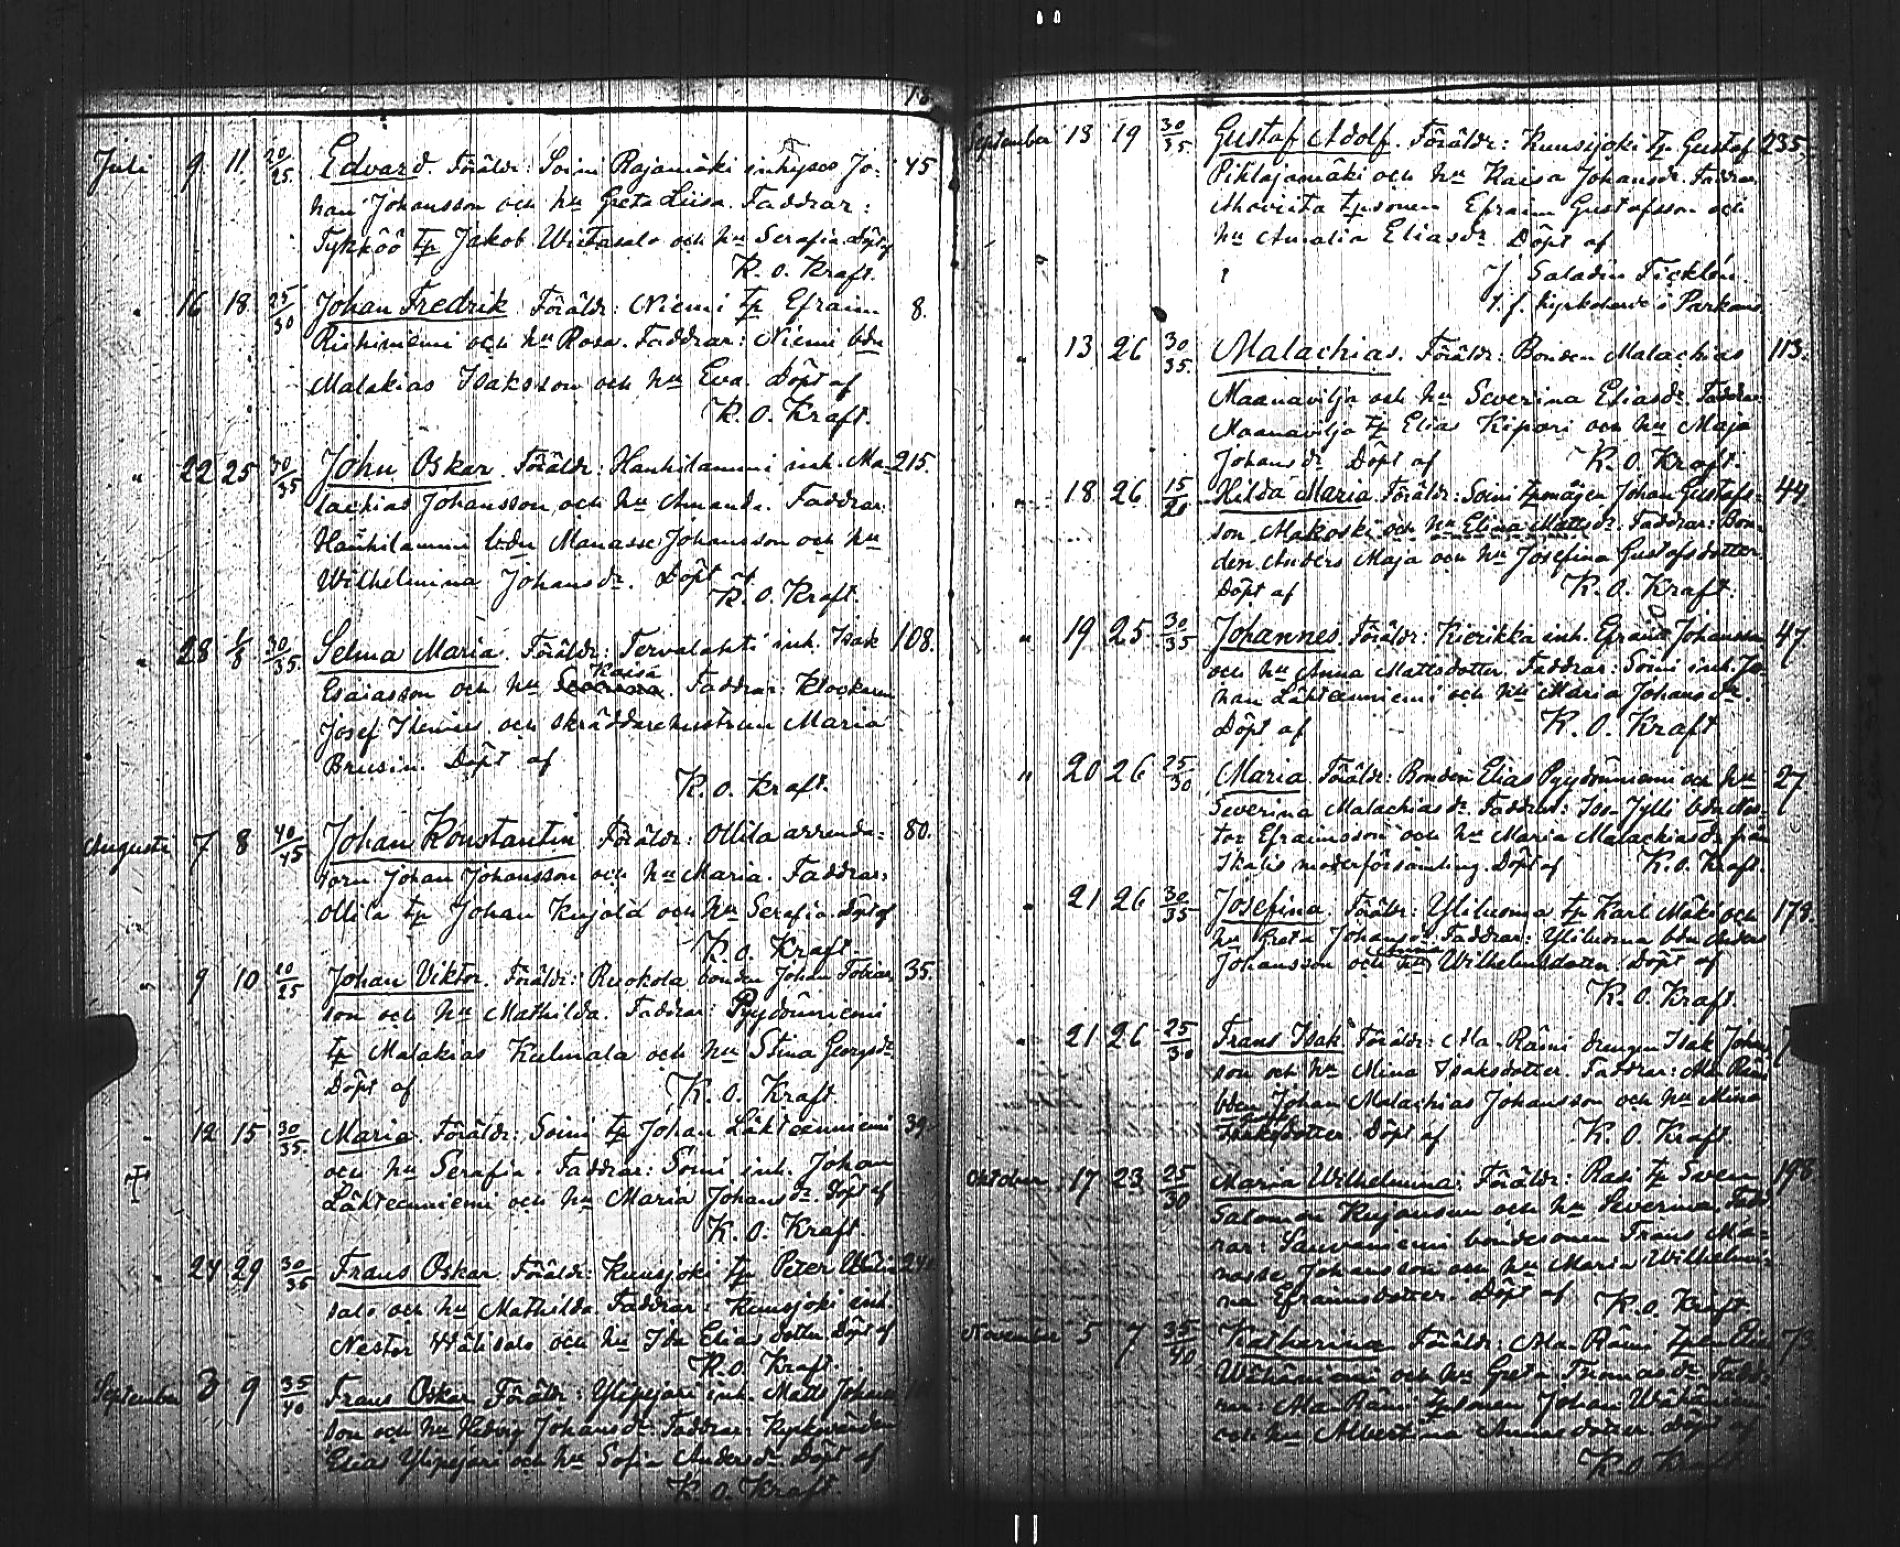 18
Juli 9. 11. 20/25. Edvard. Föräldr: Soini Rajamäki inhyses Jo- 45
han Johansson och hu Greta Liisa. Faddrar:
Tykköö tp Jakob Wiitasalo och hu Serafia Döpt af
K. O. Kraft.
" 16 18. 25/30 Johan Fredrik Föräldr: Niemi tp Efraim 8.
Riihiniemi och hu Rosa. Faddrar: Niemi bdn
Malakias Isaksson och hu Eva. Döpt af
K. O. Kraft.
" 22 25 30/35 John Oskar. Föräldr: Hanhilammi inh. Ma- 215.
lachias Johansson och hu Amanda. Faddrar:
Hanhilammi bdn Manasse Johansson och hu
Wilhelmina Johansdr. Döpt af
K. O. Kraft.
" 28 1/8 30/35. Selma Maria. Föräldr: Tervalahti inh. Isak 108.
Kaisa
Esaiasson och hu Severina. Faddrar: Klockaren
Josef och skräddarehustrun Maria
Brusin. Döpt af
K. O. Kraft.
Augusti 7 8 40/45 Johan Konstantin Föräldr: Ollila arrenda- 80.
torn Johan Johansson och hu Maria. Faddrar:
Ollila tp Johan Kujala och hu Serafia. Döpt af
K. O. Kraft
" 9 10 20/25 Johan Viktor. Föräldr: Ruokola bonden Johan Tobias- 35.
son och hu Mathilda. Faddrar: Pyydönniemi
tp Malakias Kulmala och hu Stina Georgsdr
Döpt af K. O. Kraft.
" 12 15 30/35. Maria. Föräldr: Soini tp Johan Läkteenniemi 39.
och hu Serafia. Faddrar: Soini inh. Johan
Läkteenniemi och hu Maria Johansdr. Döpt af
K. O. Kraft.
" 24 29 30/35 Frans Oskar. Föräldr: Kuusjoki tp Peter
salo och hu Mathilda. Faddrar: Kuusjoki inh.
Nestor och hu Ida Elias dotter Döpt af
K. O. Kraft.
September 3 9 35/40 Frans Oskar Föräldr: Ylipejari inh. Matts Johans
son och hu Hedvig Johansdr. Faddrar: Kyrkovärden
Elias Ylipejari och hu Sofia Andersdr Döpt af
K. O. Kraft.
September 13 19 30/35. Gustaf Adolf. Föräldr: Kuusijoki tp Gustaf 235.
Pihlajamäki och hu Kaisa Johansdr. Faddrar
Ahoviita tpsonen Efraim Gustafsson och
hu Amalia Eliasdr. Döpt af
J. Saladin Ticklén
t. f. kyrkoherde i Parkano
" 13 26 30/35. Malachias. Föräldr: Bonden Malachias 113.
Maanavilja och hu Severina Eliasdr. Faddrar
Maanavilja tp Elias Kipari och hu Maja
Johansdr. Döpt af K. O. Kraft.
" 18 26 15/20 Hilda Maria. Föräldr: Soini tpmågen Johan Gustafs- 44.
son Makoski och hu Elina Mattsdr. Faddrar: Bon-
den Anders Maja och hu Josefina Gustafsdotter
Döpt af K. O. Kraft.
" 19 25 30/35 Johannes. Föräldr: Kierikka inh. Efraim Johansson 47
och hu Anna Mattsdotter. Faddrar: Soini inh. Jo-
han Läkteenniemi och hu Maria Johansdr.
Döpt af K. O. Kraft
" 20 26 25/30 Maria. Föräldr: Bonden Elias Pyydönniemi och hu 27
Severina Malachiasdr. Faddrar: Iso-Jylli bdn Nes-
tor Efraimsson och hu Maria Malachiasdr från
Ikalis moderförsamling. Döpt af K. O. Kraft.
" 21 26 30/35 Josefina. Föräldr: Yliluoma tp Karl Mäki och 178.
hu Greta Johansdr. Faddrar: Yliluoma bdn Anders
Johansson och hu Wilhelmsdotter. Döpt af
K. O. Kraft.
" 21 26 25/30 Frans Isak. Föräldr: Ala-Räini drengen Isak Johans- 7
son och hu Mina Isaksdotter. Faddrar: Ala Räini
bden Johan Malachias Johansson och hu Mina
Isaksdotter. Döpt af K. O. Kraft
Oktober 17 23 25/30 Maria Wilhelmina. Föräldr: Rasi tp Sven 198
Salomon Kujansuu och hu Severina. Fadd
rar: Sauvaniemi bondesonen Frans Ma-
nasse Johansson och hu Maria Wilhelmi-
na Efraimsdotter. Döpt af K. O. Kraft
November 5 7 35/40 Katharina Föräldr: Ala-Räini 73
och hu Greta Thomasdr. Fadd-
rar: Ala-Räini tpsonen Johan
och hu Albertina dotter. Döpt af
K. O. Kraft